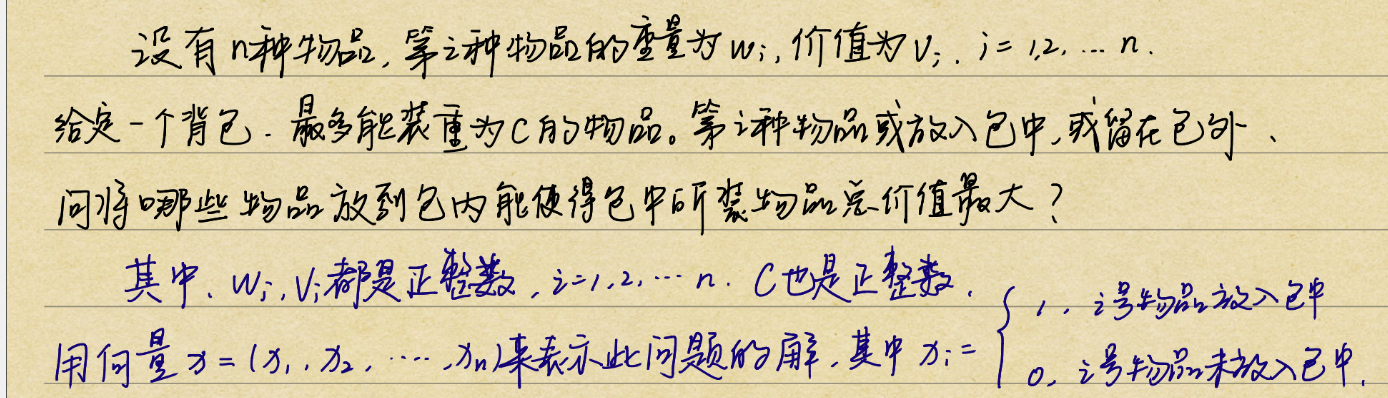 设有n种物品,第i种物品的重量为wi,价值为vi,i=1,2,…n.
给定一个背包.最多能装重为C的物品。第i种物品或放入包中,或留在包外、
问将哪些物品放到包内能使得包中所装物品总价值最大?
其中、wi,vi都是正整数,i=1,2,…n.C也是正整数.
用向量x=(x1,x2,…,xn)来表示此问题的解,其中xi={1,i号物品放入包中
0,i号物品未放入包中.